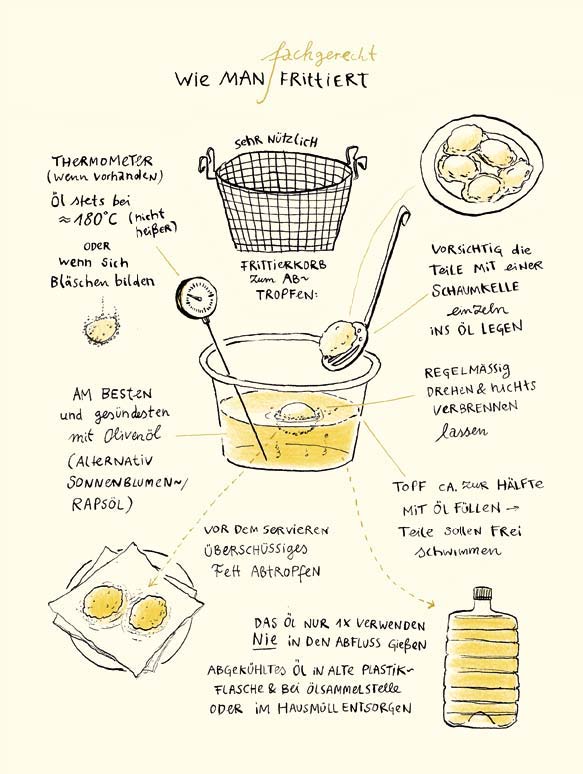 fachgerecht
WIE MAN FRITTIERT
SEHR NÜTZLICH
FRITTIERKORB
ZUM AB-
TROPFEN:
THERMOMETER
(wenn vorhanden)
Öl stets bei
≈180°C (nicht
heißer)
ODER
wenn sich
Bläschen bilden
VORSICHTIG die
TEILE MIT EINER
SCHAUMKELLE
einzeln
INS ÖL LEGEN
REGELMÄSSIG
DREHEN & NICHTS
VERBRENNEN
lassen
AM BESTEN
und gesündesten
mit Olivenöl
(ALTERNATIV
SONNENBLUMEN-/
RAPSÖL)
TOPF CA. ZUR HÄLFTE
MIT ÖL FÜLLEN →
TEILE SOLLEN FREI
SCHWIMMEN
VOR DEM SERVIEREN
ÜBERSCHÜSSIGES
FETT ABTROPFEN
DAS ÖL NUR 1X VERWENDEN
NIE IN DEN ABFLUSS GIEßEN
ABGEKÜHLTES ÖL IN ALTE PLASTIK-
FLASCHE & BEI ÖLSAMMELSTELLE
ODER IM HAUSMÜLL ENTSORGEN